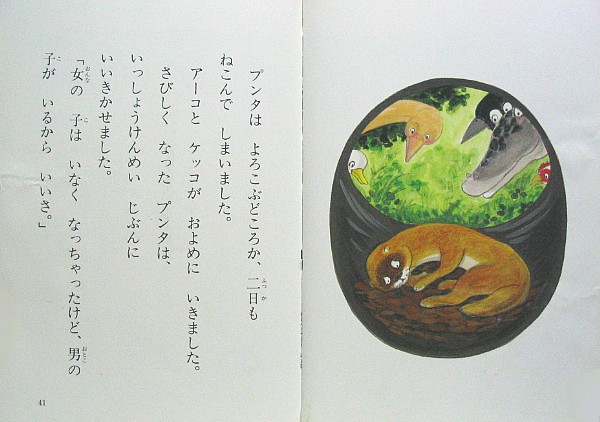 プンタは　よろこぶどころか、二日も
ねこんで　しまいました。
アーコと　ケッコが　およめに　いきました。
さびしく　なった　プンタは、
いっしょうけんめい　じぶんに
いいきかせました。
「女の　子は　いなく　なっちゃったけど、男の
子が　いるから　いいさ。」
41